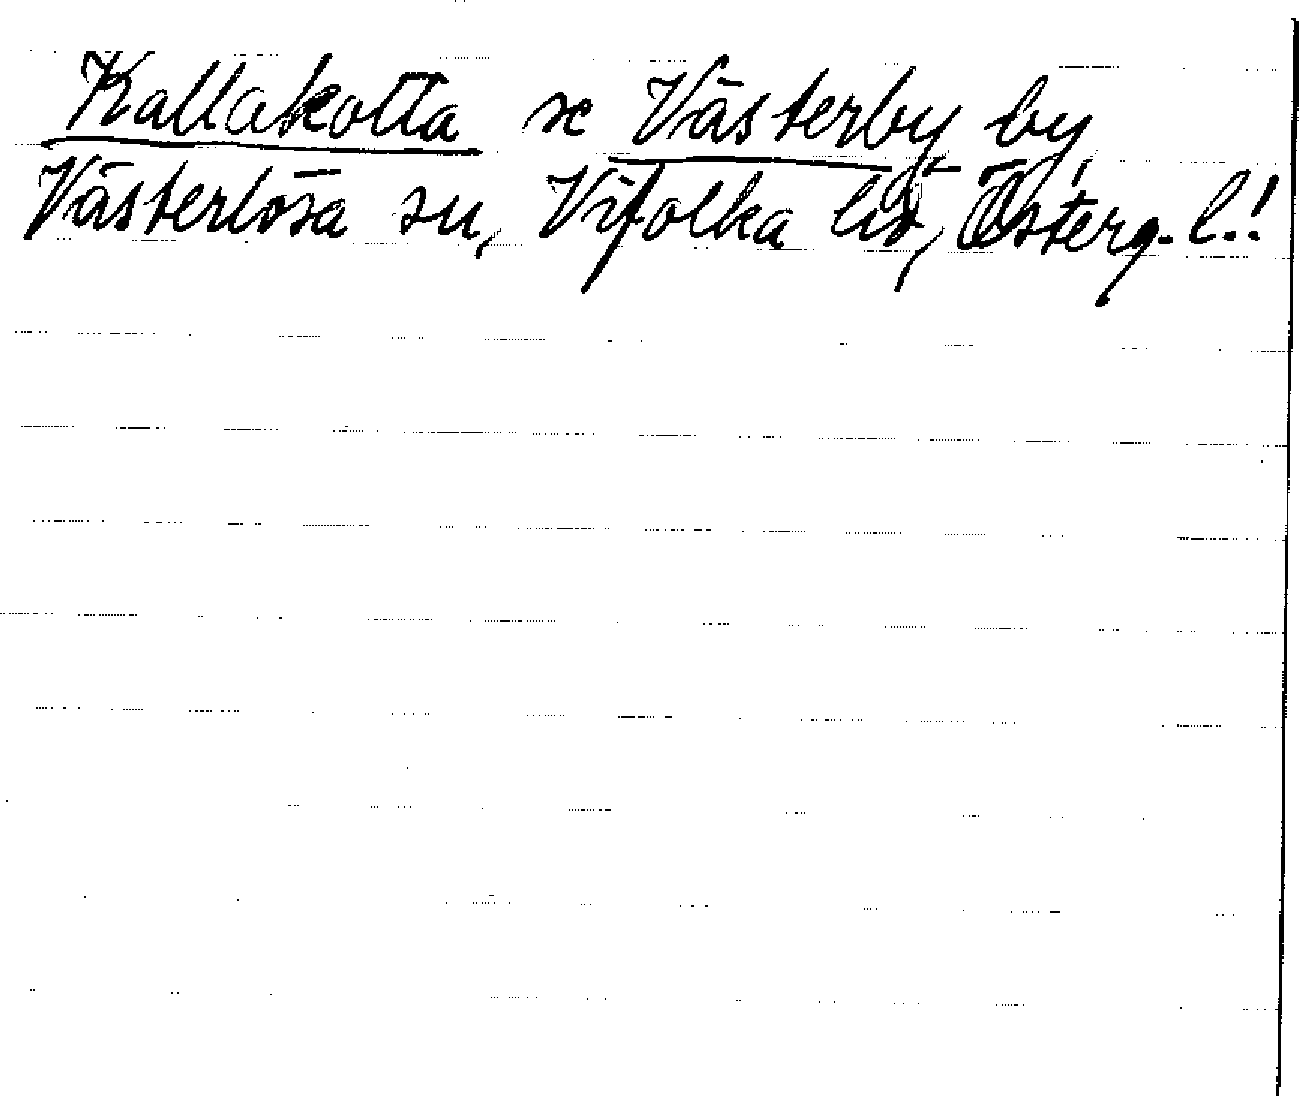 Kallakotta se Västerby by,
Västerlösa sn, Vifolka hd, Österg. l.!